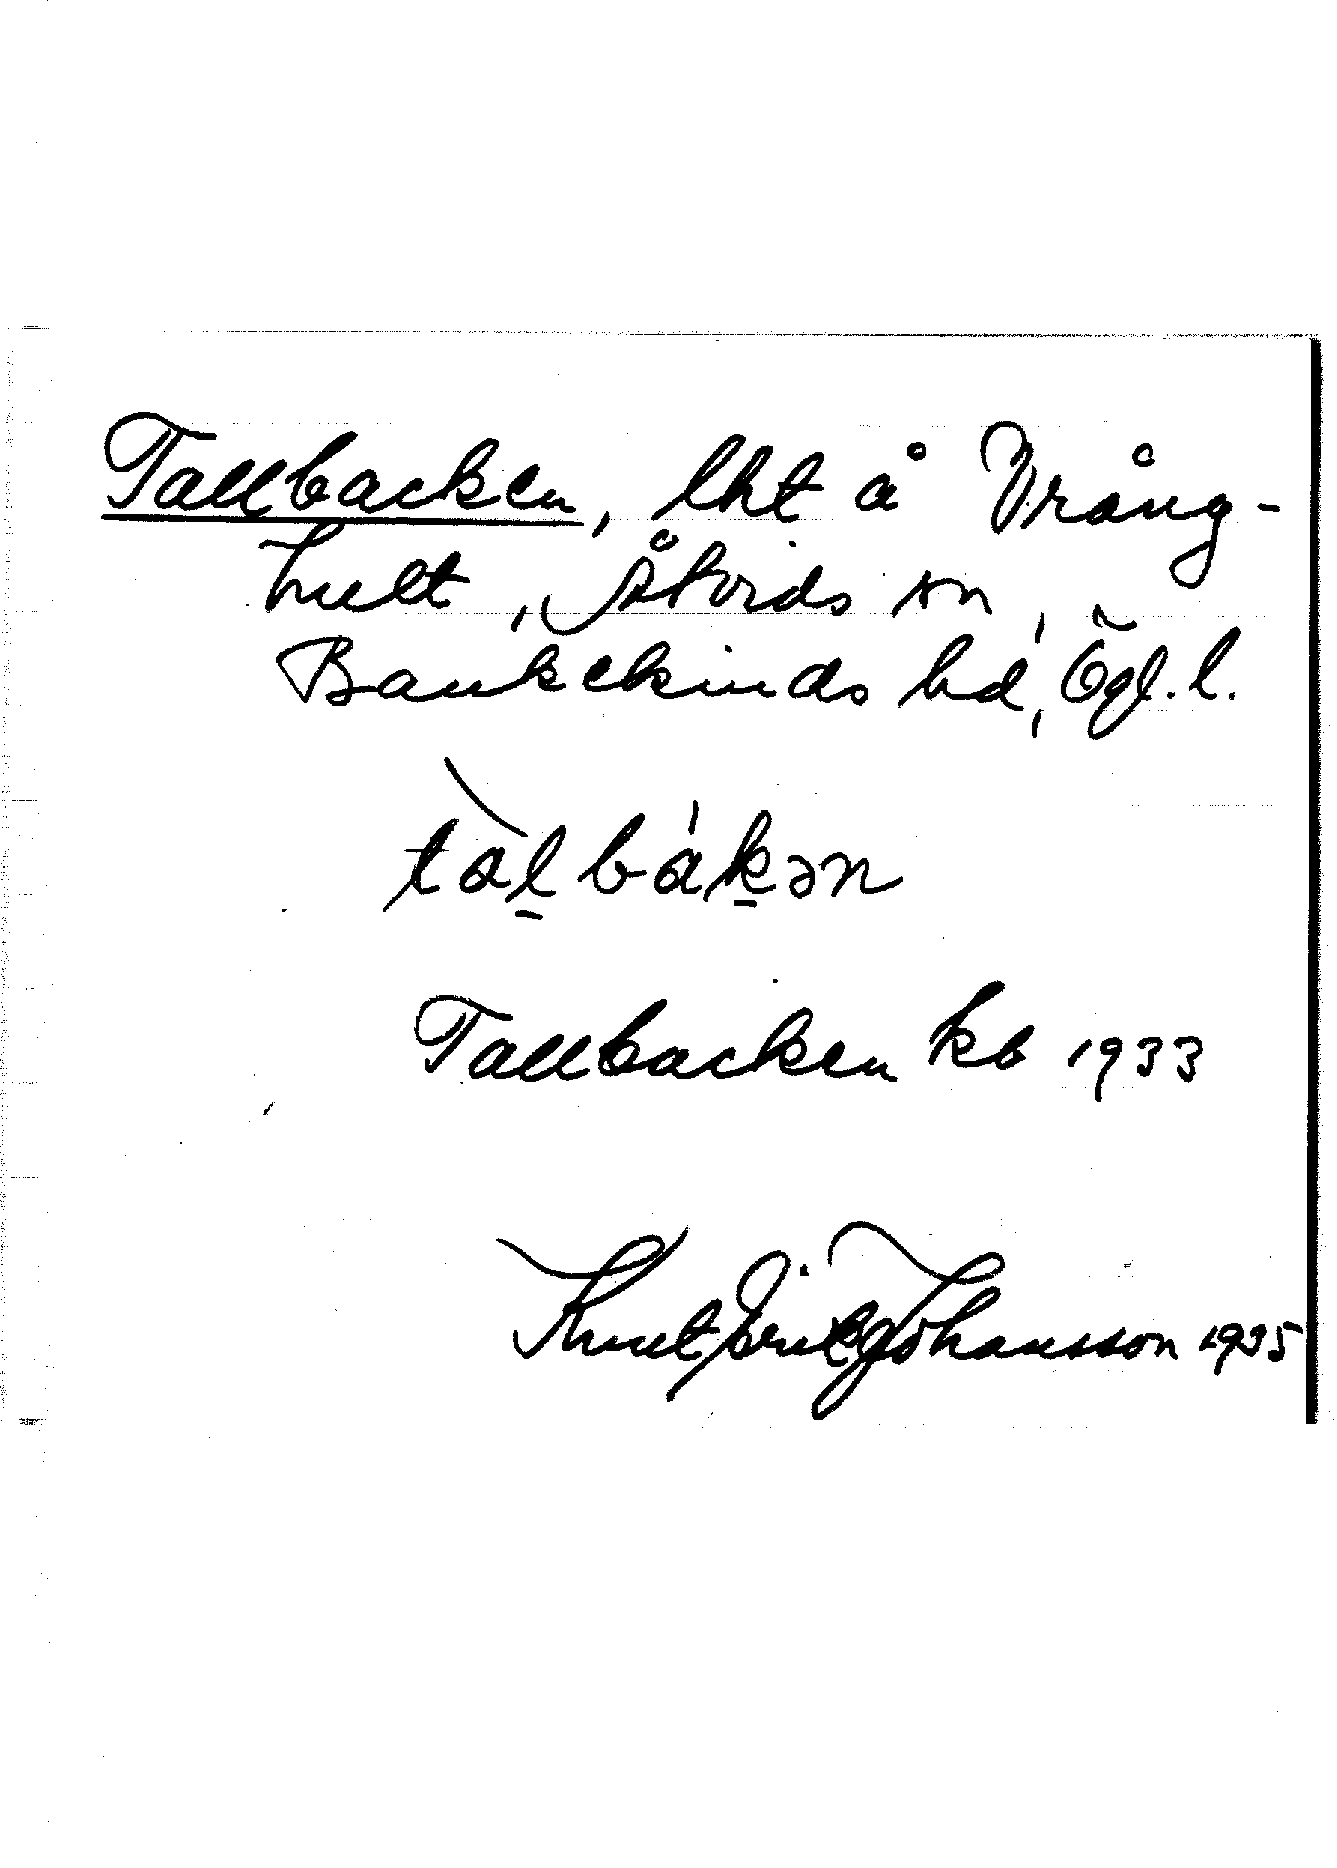 Tallbacken, lht å Vrång-
hult, Åtvids sn,
Bankekinds hd, Ögl. l.
tàl̠bák̠ən
Tallbacken kb 1933
Knut Erik Johansson 1935